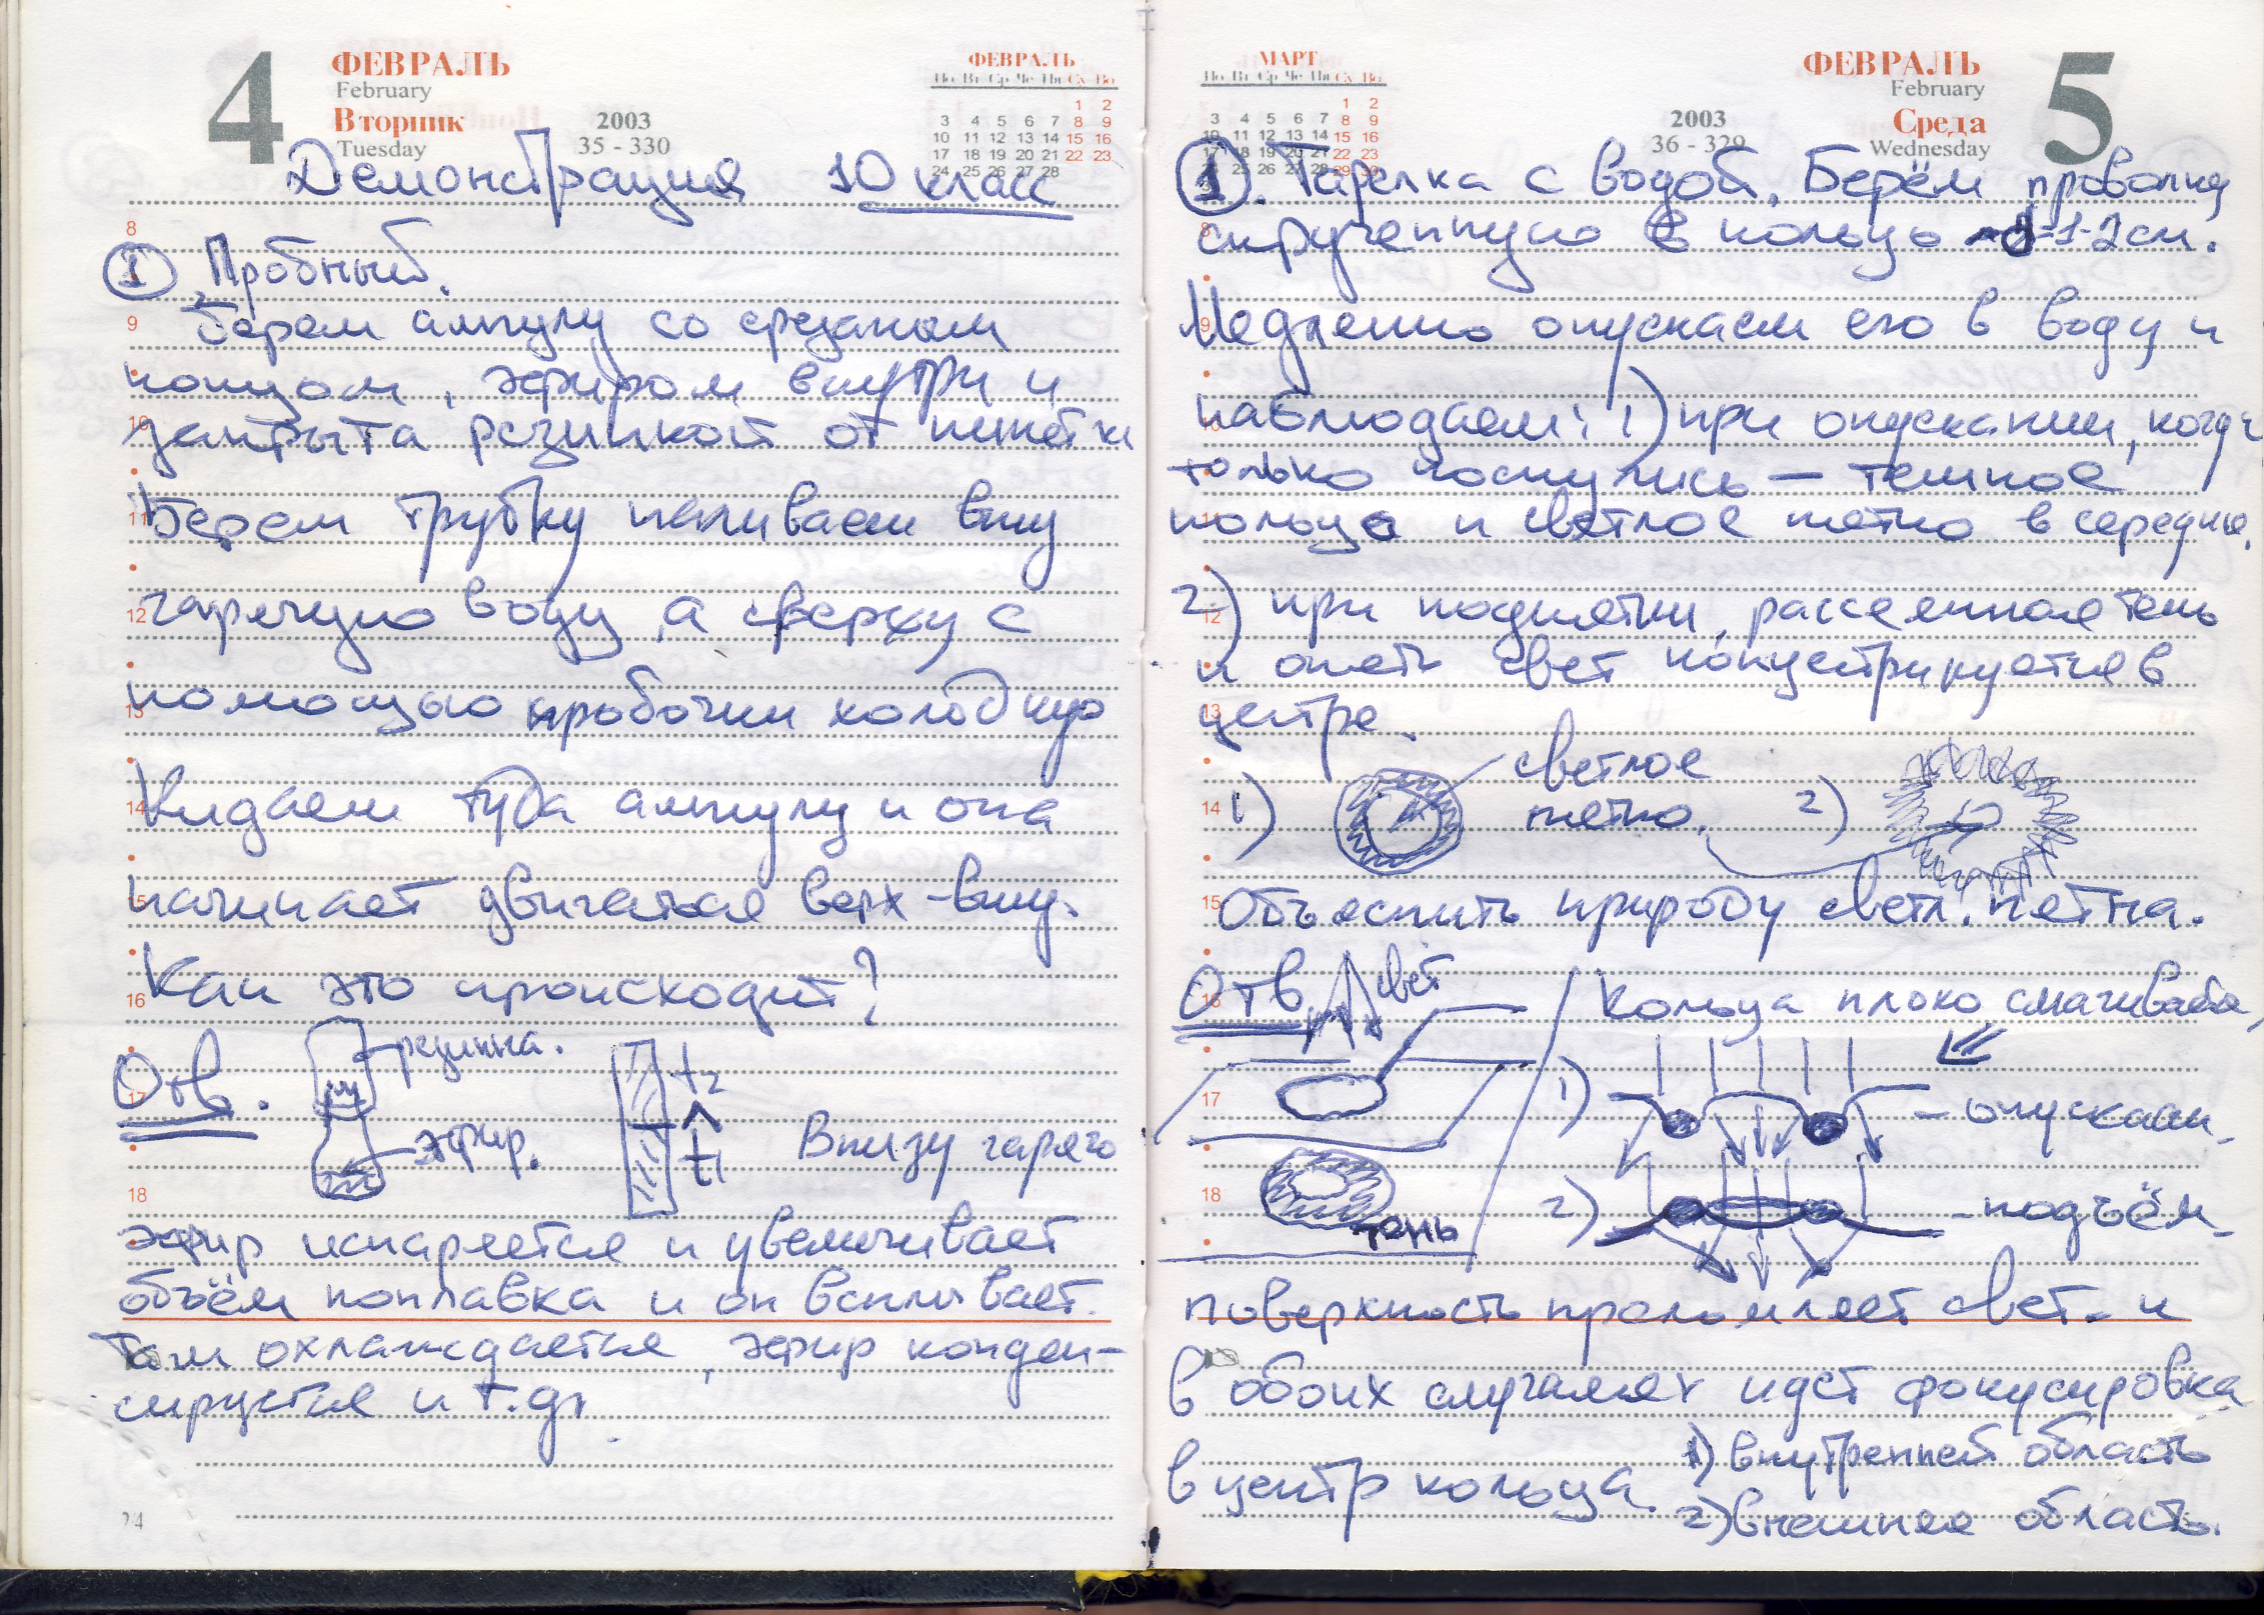 4
ФЕВРАЛЬ
February
Вторник
Tuesday
2003
35 - 330
ФЕВРАЛЬ
По Вт Ср Че Пн Сх Во
1 2
3 4 5 6 7 8 9
10 11 12 13 14 15 16
17 18 19 20 21 22 23
24 25 26 27 28
Демонстрация 10 класс
8
① Пробный.
9
Берем ампулу со срезаным
концом, эфиром внутри и
10
закрыта резинкой от пипетки
11
Берем трубку наливаем вниз
12
гарячую воду, а сверху с
13
помощью пробочки холодную
14
Кидаем туда ампулу и она
15
начинает двигаться верх-вниз.
16
Как это происходит?
17
Отв.
резинка.
эфир.
t2
t1
Внизу гаряго
18
эфир испаряется и увеличивает
объём поплавка и он всплывает.
Там охлаждается, эфир конден-
сируется и т.д.
24
МАРТ
По Вт Ср Че Пн Сх Во
1 2
3 4 5 6 7 8 9
10 11 12 13 14 15 16
17 18 19 20 21 22 23
25 26 27 28 29 30
2003
36 - 329
ФЕВРАЛЬ
February
Среда
Wednesday
5
①. Тарелка с водой. Берём проволку
8
скрученную в кольцо 1-2см.
9
Медленно опускаем его в воду и
10
наблюдаем: 1) при опускании, когда
только коснулись — темное
11
кольцо и светлое пятно в середине.
12
2) при поднятии, рассеянная тень
и опять свет концетрируется в
13
центре.
14
1)
светлое
пятно.
2)
15
Объяснить природу светл. пятна.
16
Отв.
свет
Кольца плохо смачивается,
17
1)
- опускаем.
18
тень
2)
- подъём.
поверхность преломляет свет и
в обоих случаях идет фокусировка
в центр кольца.
1) внутренней область
2) внешняя область.